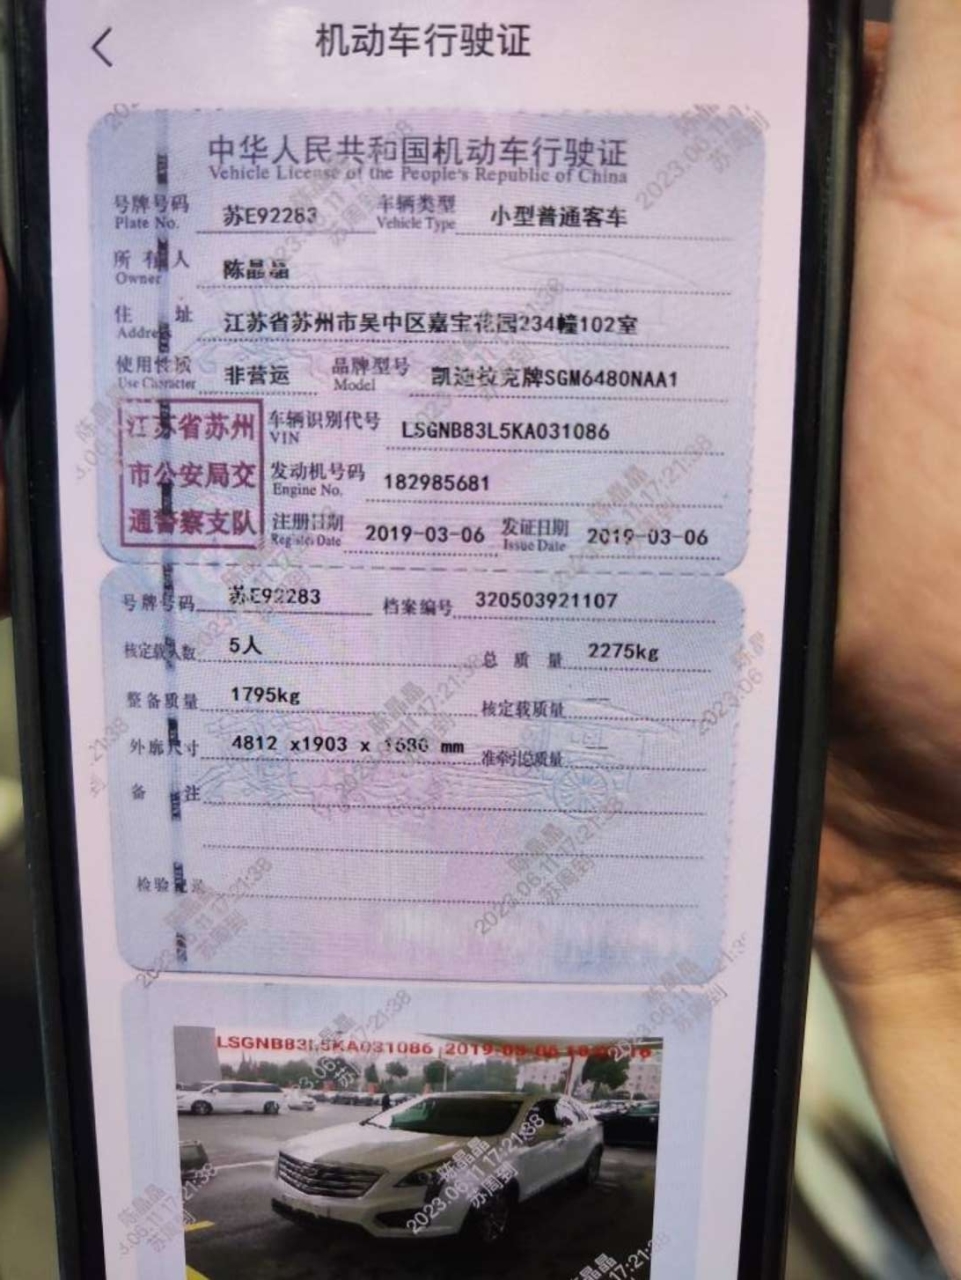 机动车行驶证
中华人民共和国机动车行驶证
Vehicle License of the People's Republic of China
号牌号码 苏E92283 车辆类型 小型普通客车
Plate No. Vehicle Type
所有人 陈晶晶
Owner
住 址 江苏省苏州市吴中区嘉宝花园234幢102室
Address
使用性质 非营运 品牌型号 凯迪拉克牌SGM6480NAA1
Use Character Model
江苏省苏州
市公安局交
通警察支队
车辆识别代号 LSGNB83L5KA031086
VIN
发动机号码 182985681
Engine No.
注册日期 2019-03-06 发证日期 2019-03-06
Register Date Issue Date
号牌号码 苏E92283 档案编号 320503921107
核定载人数 5人 总 质 量 2275kg
整备质量 1795kg 核定载质量 --
外廓尺寸 4812 x1903 x 1680 mm 准牵引总质量 --
备 注
检验记录
LSGNB83L5KA031086
陈晶晶
2023.06.11 17:21:38
苏周到